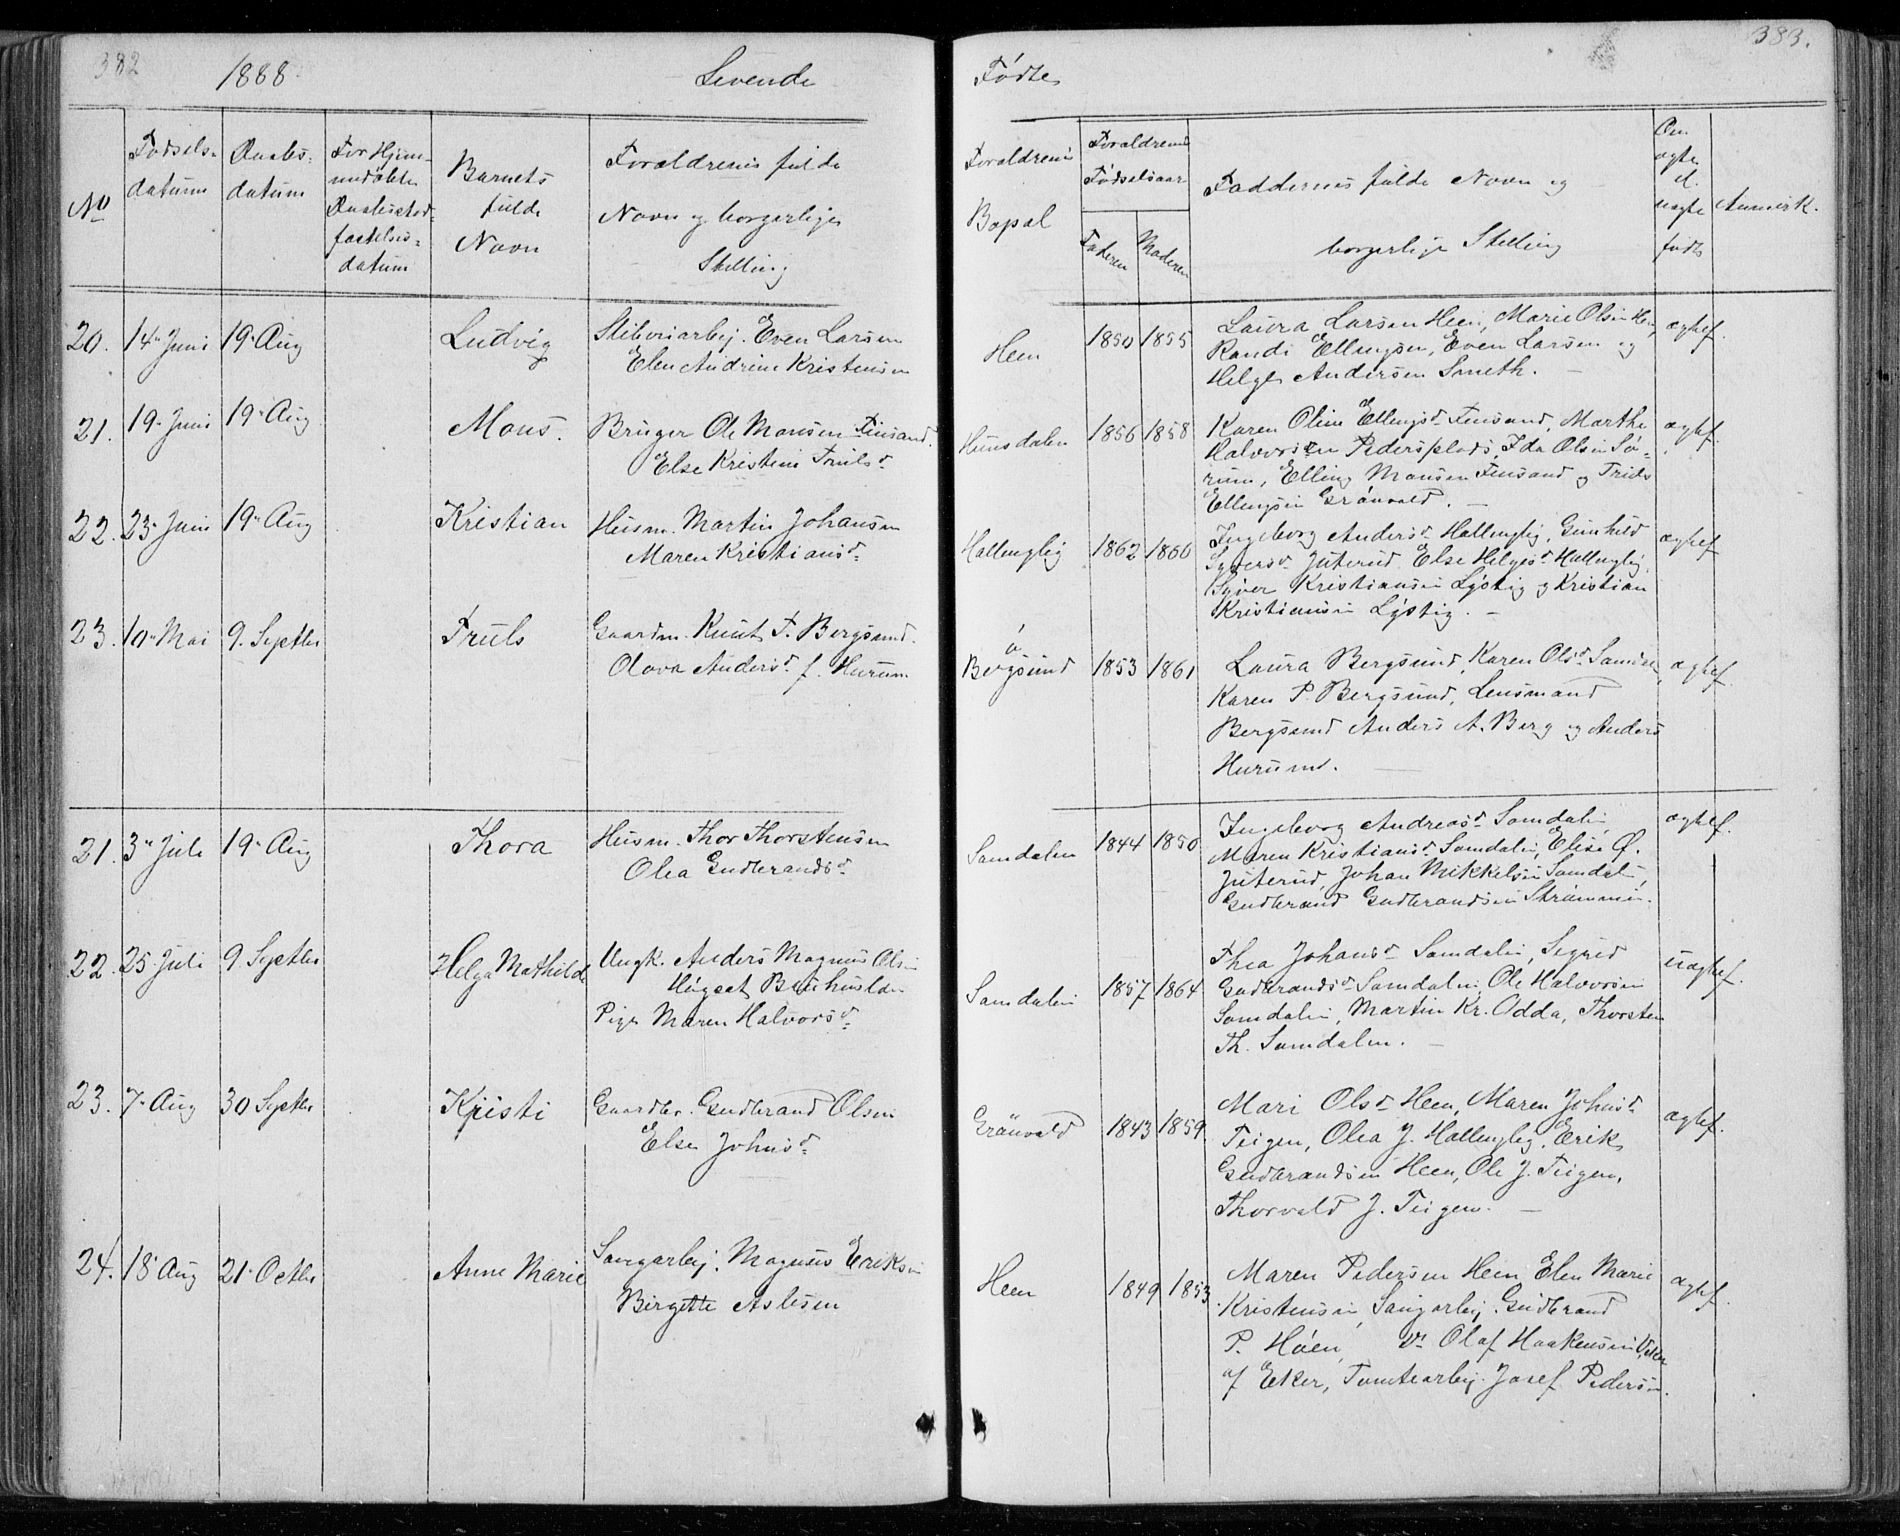 382
1888.
Levende
Fødte
383.
No
Fødsels-
datum
Daabs-
datum
For Hjem-
medøbte
Daabsstad-
fæstelses-
datum
Barnets
fulde
Navn
Forældrenes fulde
Navn og borgerlige
Stilling
Forældrenes
Bopæl
Forældrenes
Fødselsaar
Faderen
Moderen
Faddernes fulde Navn og
borgerlige Stilling
Om
ægte
el.
uægte
født
Anmerk.
20. 14 Juni 19 Aug Ludvig Sliberiarbej. Even Larsen
Elen Andrine Kristensen
Heen 1850 1855 Laura Larsen Heen, Marie Olsen Heen, ægtef.
Randi Ellingsen, Even Larsen og
Helge Andersen Smeth. —
21. 19 Juni 19 Aug Mons. Bruger Ole Monsen Finsand.
Else Kristine Trulsd.
Hunsdalen 1856 1858 Karen Oline Ellingsd. Finsand, Marthe ægtef.
Halvorsen Pedersplads, Ida Olsen Sø-
rum, Elling Monsen Finsand og Truls
Ellingsen Grønvold. —
22. 23 Juni 19 Aug Kristian Husm. Martin Johansen
Maren Kristiansd.
Hallenglig 1862 1866 Ingeborg Andersd. Hallenglig, Gunhild ægtef.
Syversd. Juterud, Else Helgesd. Hallenglig,
Syver Kristiansen Lystig og Kristian
Kristiansen Lystig. —
23. 10 Mai 9. Septbr Truls Gaardm. Knut T. Bergsund.
Olava Andersd. f. Hurum
ø
Bergsund 1853 1861 Laura Bergsund, Karen Olsd. Samdalen, ægtef.
Karen P. Bergsund, Lensmand
Bergsund Anders A. Berg og Anders
Hurum. —
21. 3 Juli 19 Aug Thora Husm. Thor Thorstensen
Olea Gudbrandsd.
Samdalen 1844 1850 Ingeborg Andreasd. Samdalen ægtef.
Maren Kristiansd. Samdalen, Elise Ø.
Juterud, Johan Mikkelsen Samdalen,
Gudbrand Gudbrandsen Strømmen.
22. 25 Juli 9 Septbr Helga Mathilde Ungk. Anders Magnus Olsen
Hugset Bænhuslden
Pige Maren Halvorsd.
Samdalen 1857 1864 Thea Johansd. Samdalen, Sigrid uægtef.
Gudbrandsd. Samdalen, Ole Halvorsen
Samdalen, Martin Kr. Odda, Thorsten
Th. Samdalen. —
23. 7 Aug 30 Septbr Kristi Gaardbr. Gudbrand Olsen
Else Johnsd.
Grønvold 1843 1859 Mari Olsd. Heen, Maren Johnsd. ægtef.
Teigen, Olea J. Hallenglig, Erik
Gudbrandsen Heen, Ole J. Teigen,
Thorvald J. Teigen. —
24. 18 Aug 21 Octbr Anne Marie Saugarbej. Magnus Eriksen
Birgette Aslesen
Heen 1849 1853 Maren Pedersen Heen, Elen Marie ægtef.
Kristensen, Saugarbej. Gudbrand
P. Høen, Olaf Haakensen Viker
af Eker, Tomtearbej. Josef Pedersen.